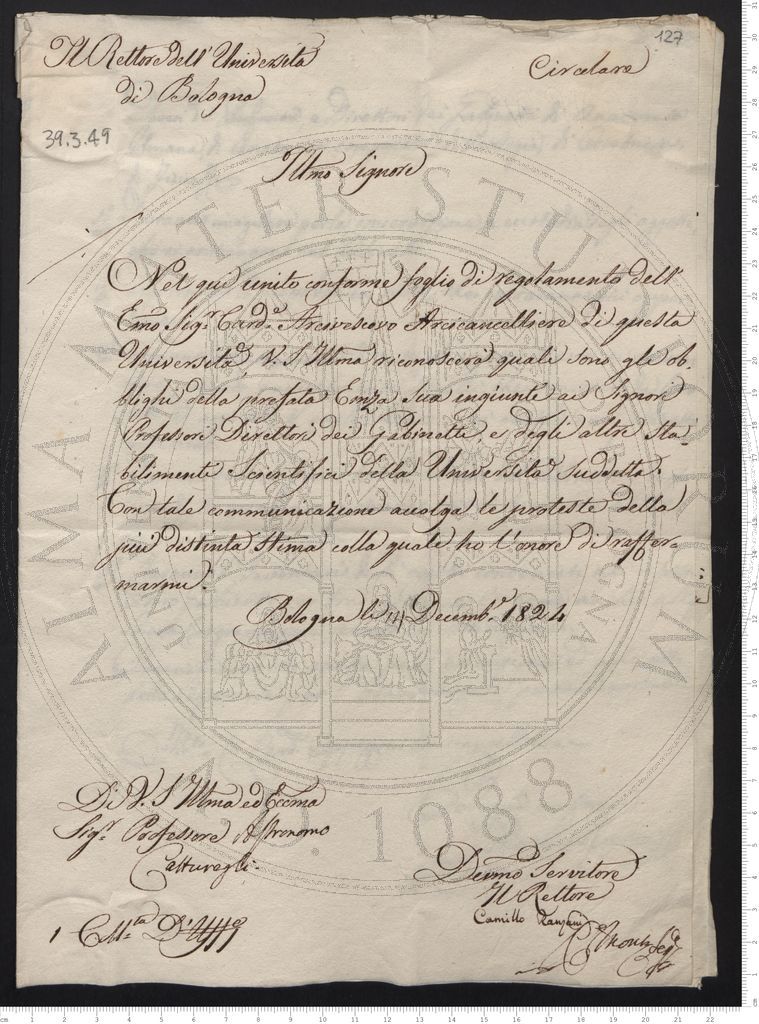 127
Il Rettore dell' Università
di Bologna
Circolare
39.3.49
Illmo Signore
Nel qui unito conforme foglio di regolamento dell'
Emo Sigr. Card.e Arcivescovo Arcicancelliere di questa
Università, V. S. Illma riconoscerà quali sono gli ob-
blighi della prefata Emza Sua ingiunti ai Signori
Professori Direttori dei Gabinetti, e degli altri Sta-
bilimenti Scientifici della Università suddetta.
Con tale communicazione accolga le proteste della
più distinta stima colla quale ho l'onore di raffer-
marmi.
Bologna li 14 Decemb.e 1824
Di V. S. Illma ed Eccma
Sigr. Professore Astronomo
Catturegli
Devmo Servitore
Il Rettore
Camillo Ranzani
ALMA MATER STUDIORUM
A.D. 1088